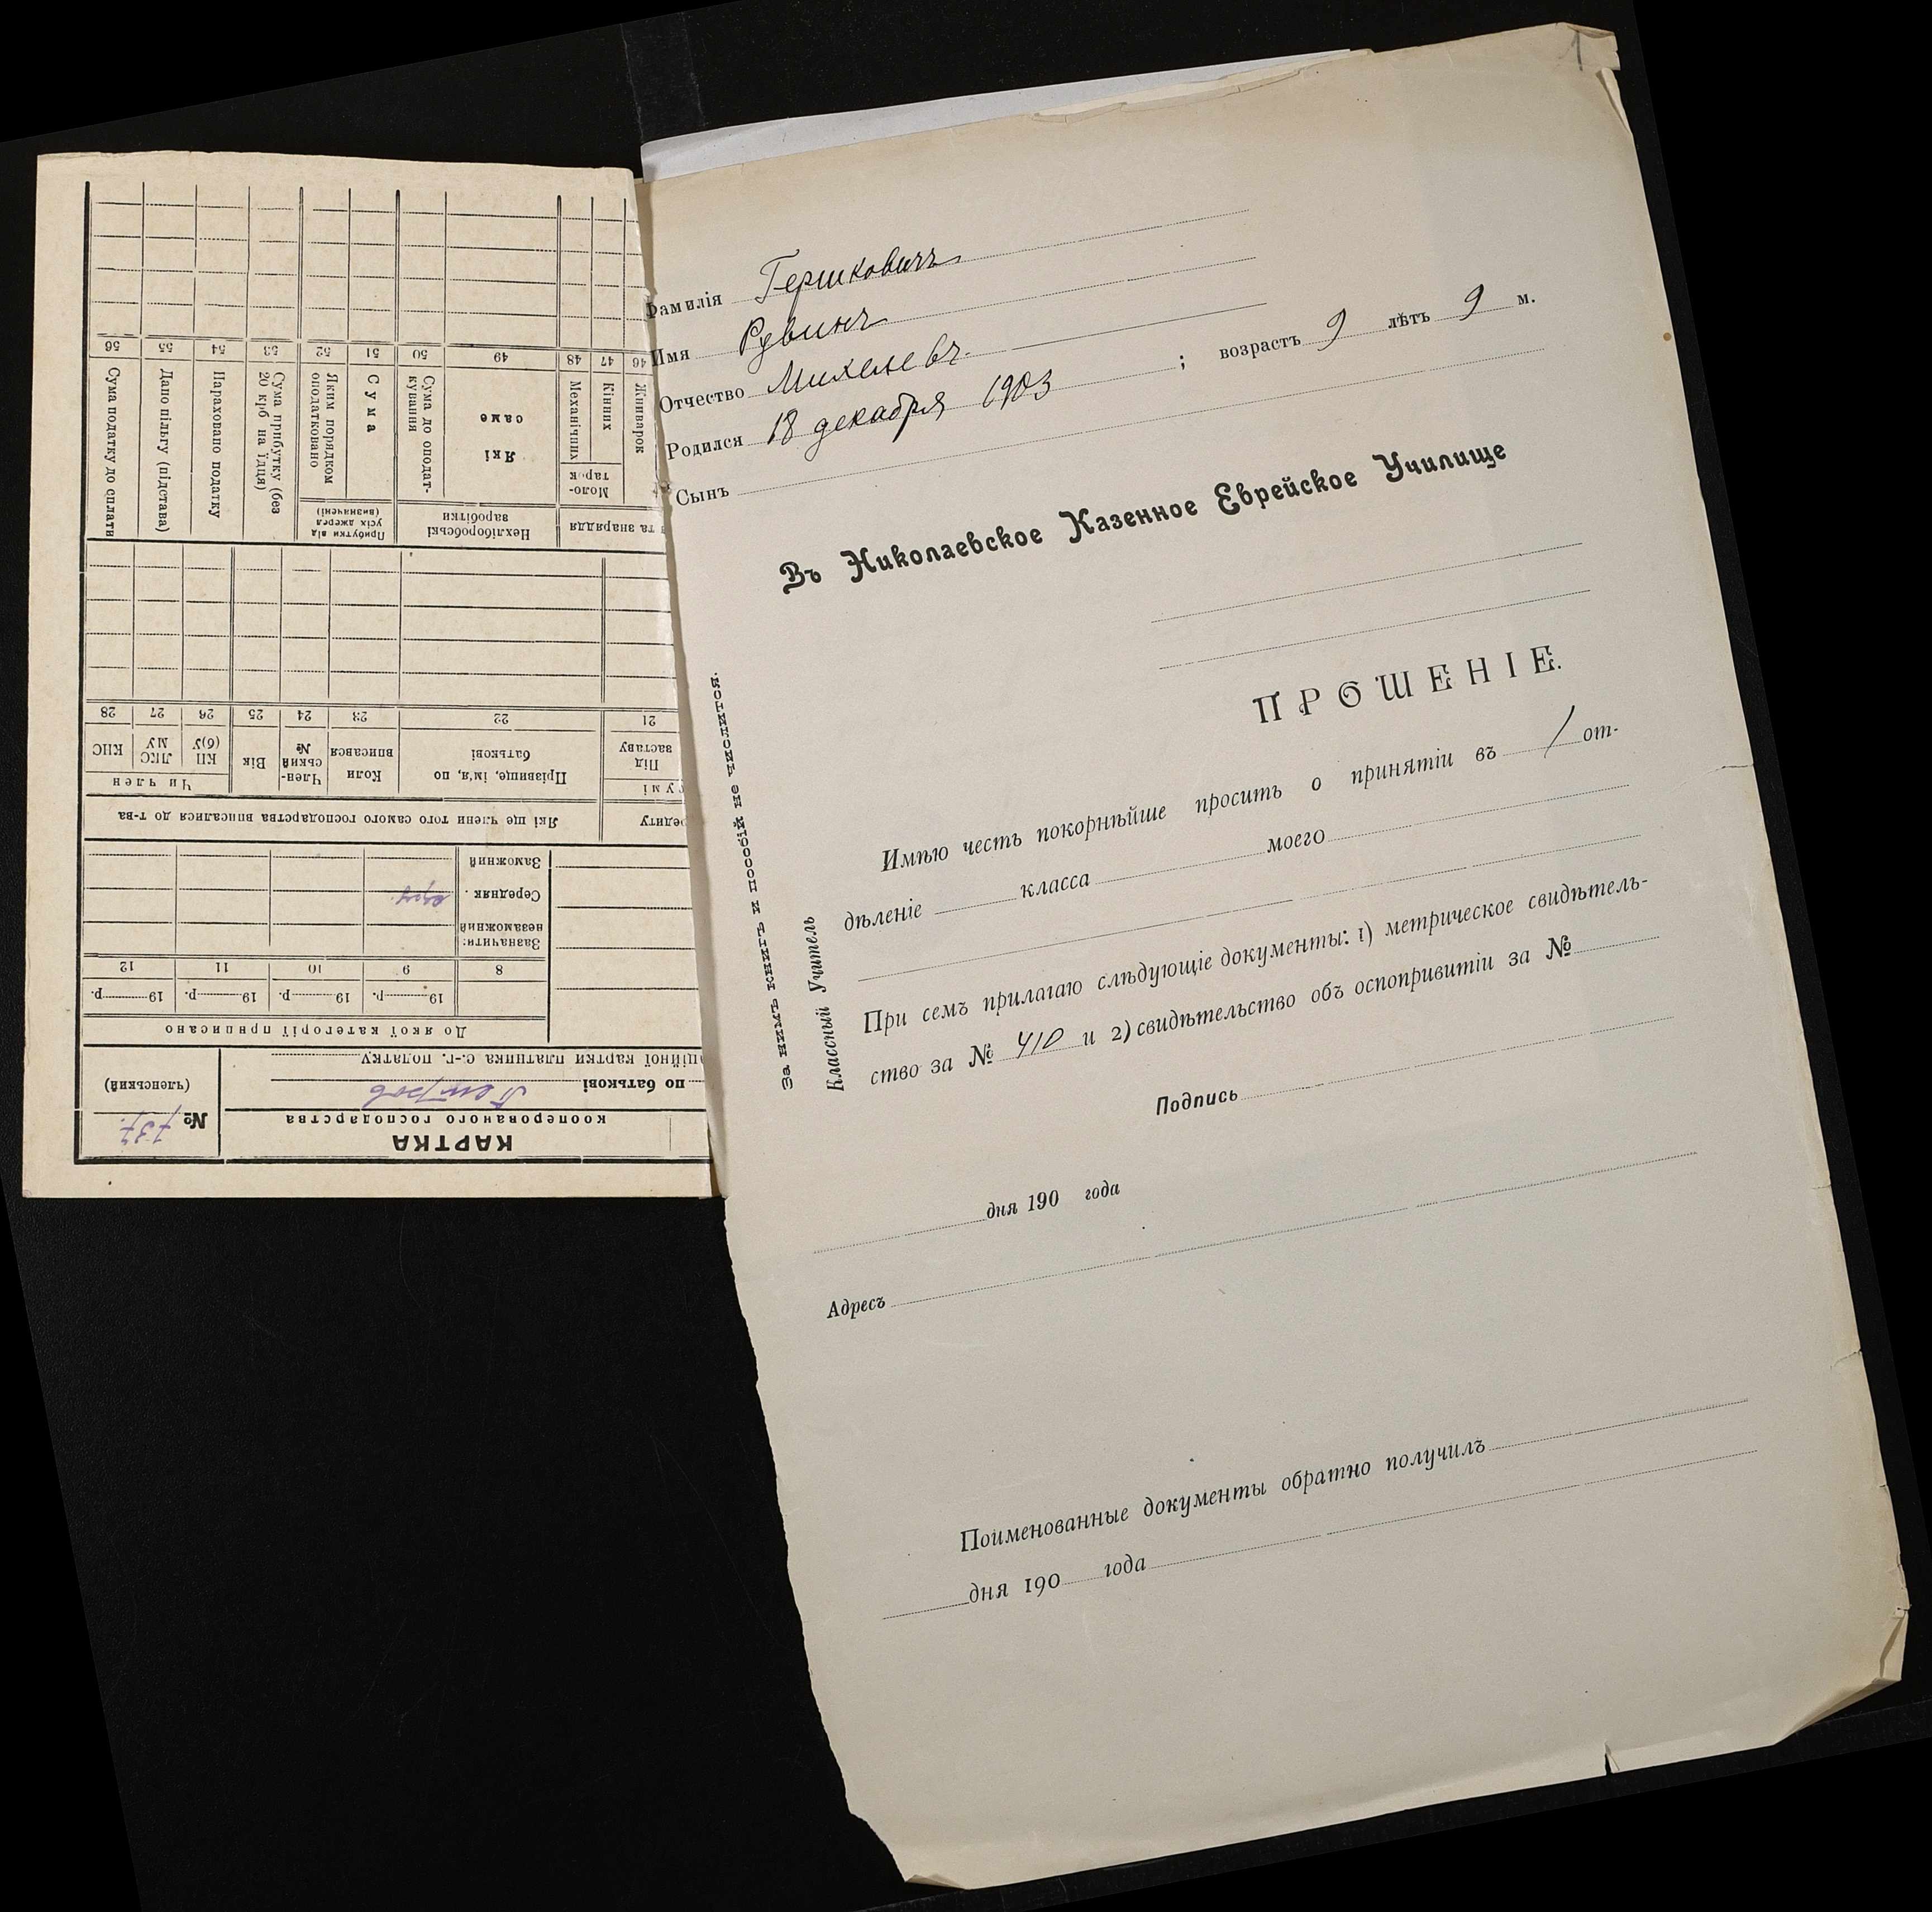 1
Фамилія Гершковичъ
Имя Рувинъ
Отчество Михелевъ
Родился 18 декабря 1903 ; возрастъ 9 лѣтъ 9 м.
Сынъ
Въ Николаевское Казенное Еврейское Училище
ПРОШЕНІЕ.
Имѣю честь покорнѣйше просить о принятіи въ / от-
дѣленіе класса моего
При семъ прилагаю слѣдующіе документы: 1) метрическое свидѣтель-
ство за № 410 и 2) свидѣтельство объ оспопривитіи за №
Подпись
дня 190 года
Адресъ
Поименованные документы обратно получилъ
дня 190 года
За нимъ книгъ и пособій не числится.
Классный Учитель
КАРТКА
кооперованого господарства
№ 737.
(членський)
по батькові
ційної картки платника с.-г. податку
До якої категорії приписано
19 р. 19 р. 19 р. 19 р.
8 9 10 11 12
Зазначити:
незаможний
Середняк
Заможний
Які ще члени того самого господарства вписалися до т-ва
Під заставу
Прізвище, ім'я, по батькові
Коли вписався
Член-ський №
Вік
Чи член
КП(б)У
ЛКСМУ
КНС
21 22 23 24 25 26 27 28
та знаряддя
Нехліборобські заробітки
Прибутки від усіх джерел (визначені)
Жниварок
Кінних
Моло-тарок
Механічних
Які саме
Сума до оподат-кування
Сума
Яким порядком оподатковано
Сума прибутку (без 20 крб на їдця)
Нараховано податку
Дано пільгу (підстава)
Сума податку до сплати
46 47 48 49 50 51 52 53 54 55 56